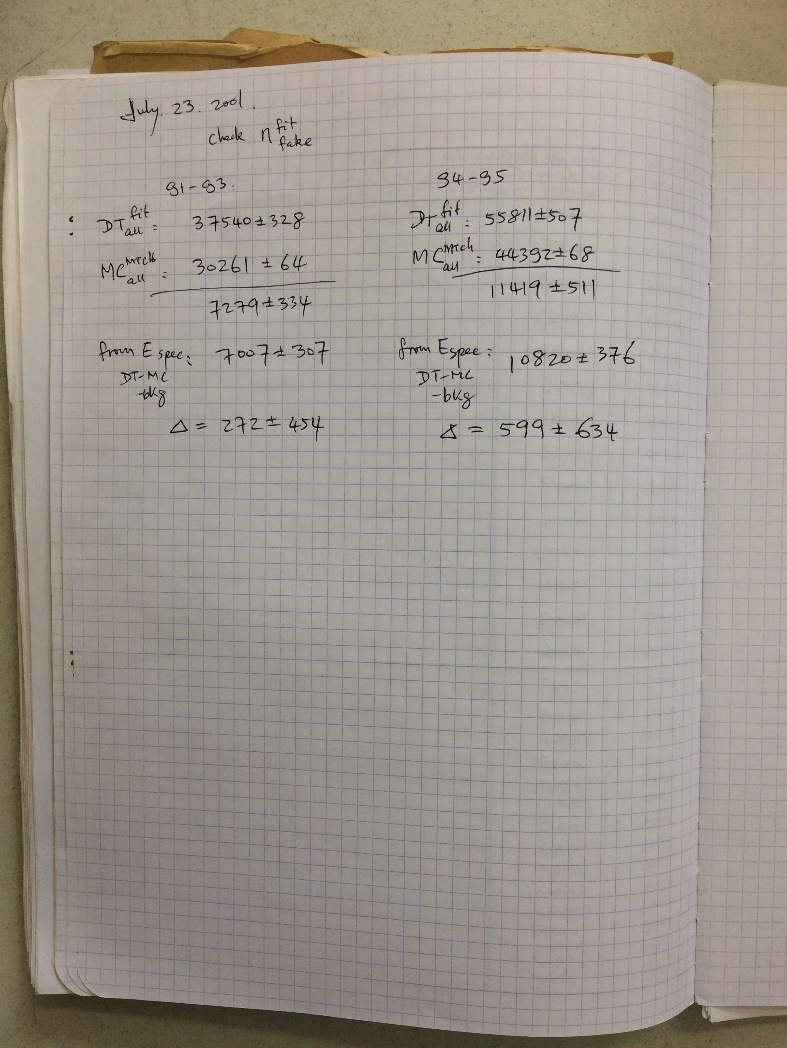 July. 23. 2001.
check n fit fake
91-93.
DT fit all : 37540 ± 328
MC MTch all : 30261 ± 64
7279 ± 334
from E spec: 7007 ± 307
DT-MC
-bkg
Δ = 272 ± 454
94-95
DT fit all : 55811 ± 507
MC MTch all : 44392 ± 68
11419 ± 511
from Espec : 10820 ± 376
DT-MC
-bkg
Δ = 599 ± 634